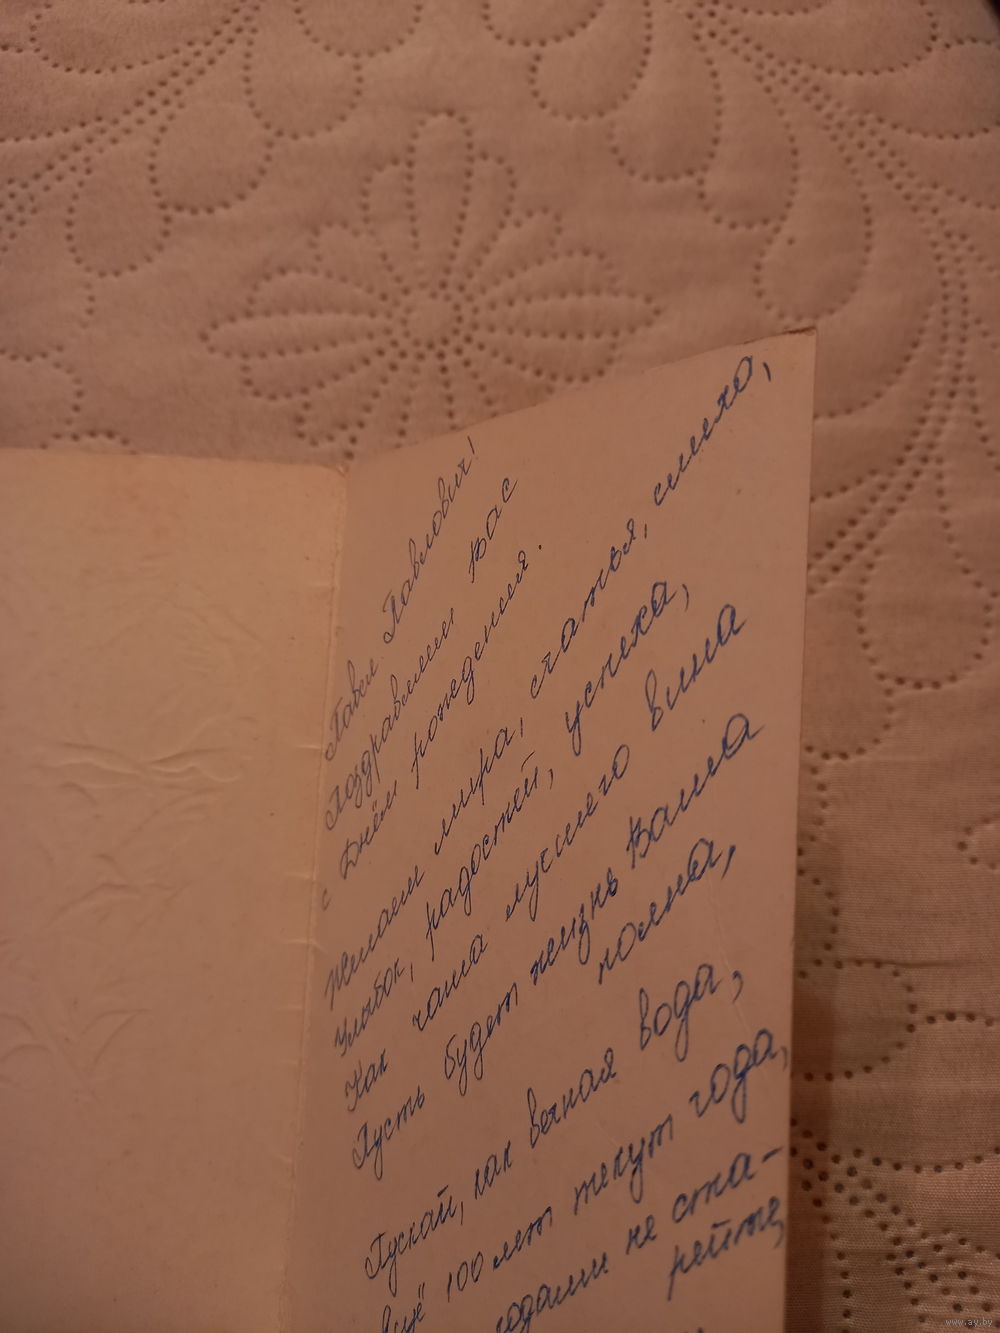 Павел Павлович!
Поздравляем Вас
с Днём рождения.
Желаем мира, счастья, смеха,
Улыбок, радостей, успеха,
Как чаша лучшего вина
Пусть будет жизнь Ваша
полна,
Пускай, как вечная вода,
ещё 100 лет текут года,
годами не ста-
рейте,
www.ay.by